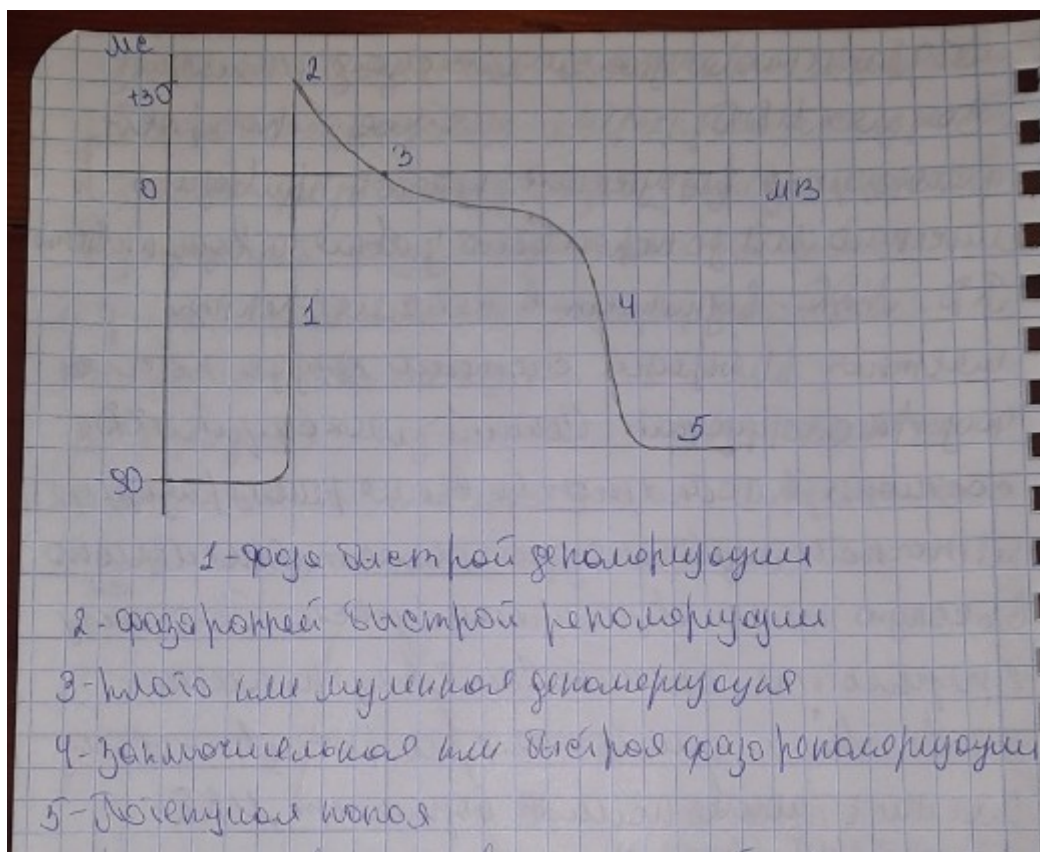 мс
+30
2
3
0
мв
1
4
5
-90
1-фаза быстрой деполяризации
2-фаза ранней быстрой реполяризации
3-плато или медленная деполяризация
4-заключительная или быстрая фаза реполяризации
5-Потенциал покоя